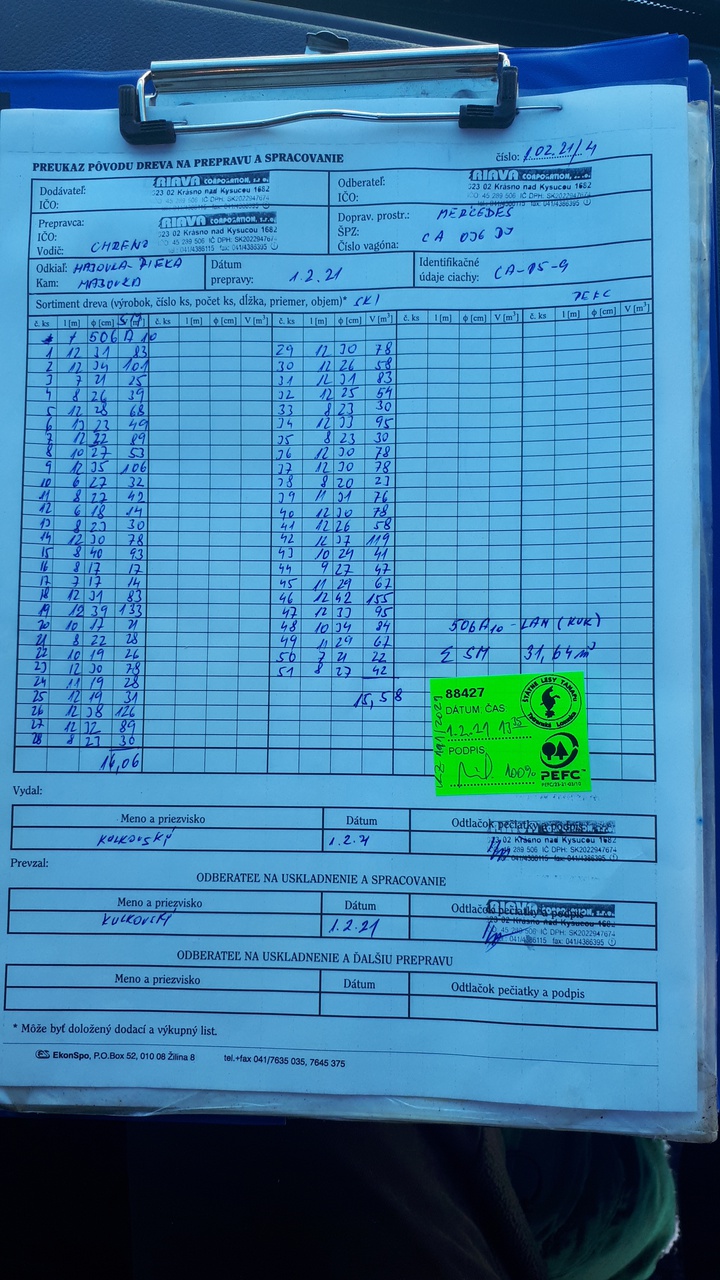 PREUKAZ PÔVODU DREVA NA PREPRAVU A SPRACOVANIE
číslo: 1.02.21/4
Dodávateľ: RIAVA CORPORATION, s.r.o.
IČO: 023 02 Krásno nad Kysucou 1682
Odberateľ: RIAVA CORPORATION, s.r.o.
IČO: 023 02 Krásno nad Kysucou 1682
Prepravca: RIAVA CORPORATION, s.r.o.
IČO: 023 02 Krásno nad Kysucou 1682
Vodič:
Doprav. prostr.: MERCEDES
ŠPZ:
Číslo vagóna: CA
Odkiaľ:
Kam:
Dátum prepravy: 1.2.21
Identifikačné údaje ciachy: CA-15-9
Sortiment dreva (výrobok, číslo ks, počet ks, dĺžka, priemer, objem)* SKI PEFC
č. ks l [m] ϕ [cm] V [m³] č. ks l [m] ϕ [cm] V [m³] č. ks l [m] ϕ [cm] V [m³] č. ks l [m] ϕ [cm] V [m³]
506 A 10
1 12 31 83 29 12 30 78
2 12 34 101 30 12 26 58
3 7 21 25 31 12 31 83
4 8 26 39 32 12 25 54
5 12 28 68 33 8 23 30
6 13 23 49 34 12 33 95
7 12 32 89 35 8 23 30
8 10 27 53 36 12 30 78
9 12 35 106 37 12 30 78
10 6 27 32 38 8 20 23
11 8 27 42 39 11 31 76
12 6 18 14 40 12 30 78
13 8 23 30 41 12 26 58
14 12 30 78 42 12 37 119
15 8 40 93 43 10 24 41
16 8 17 17 44 9 27 47
17 7 17 14 45 11 29 67
18 12 31 83 46 12 42 155
19 12 39 133 47 12 33 95
20 10 17 21 48 10 34 84
21 8 22 28 49 11 29 67
22 10 19 26 50 7 21 22
23 12 30 78 51 8 27 42
24 11 19 28
25 12 19 31
26 12 38 126
27 12 32 89
28 8 23 30
16,06
15,58
506A10 - LAN (KUK)
Σ SM 31,64 m³
88427
DÁTUM, ČAS
1.2.21 13
PODPIS
100%
ŠTÁTNE LESY TANAPU
Tatranská Lomnica
PEFC™
Vydal:
Meno a priezvisko Dátum Odtlačok pečiatky a podpis
1.2.21
Prevzal:
ODBERATEĽ NA USKLADNENIE A SPRACOVANIE
Meno a priezvisko Dátum Odtlačok pečiatky a podpis
1.2.21
ODBERATEĽ NA USKLADNENIE A ĎALŠIU PREPRAVU
Meno a priezvisko Dátum Odtlačok pečiatky a podpis
* Môže byť doložený dodací a výkupný list.
EkonSpo, P.O.Box 52, 010 08 Žilina 8 tel.+fax 041/7635 035, 7645 375